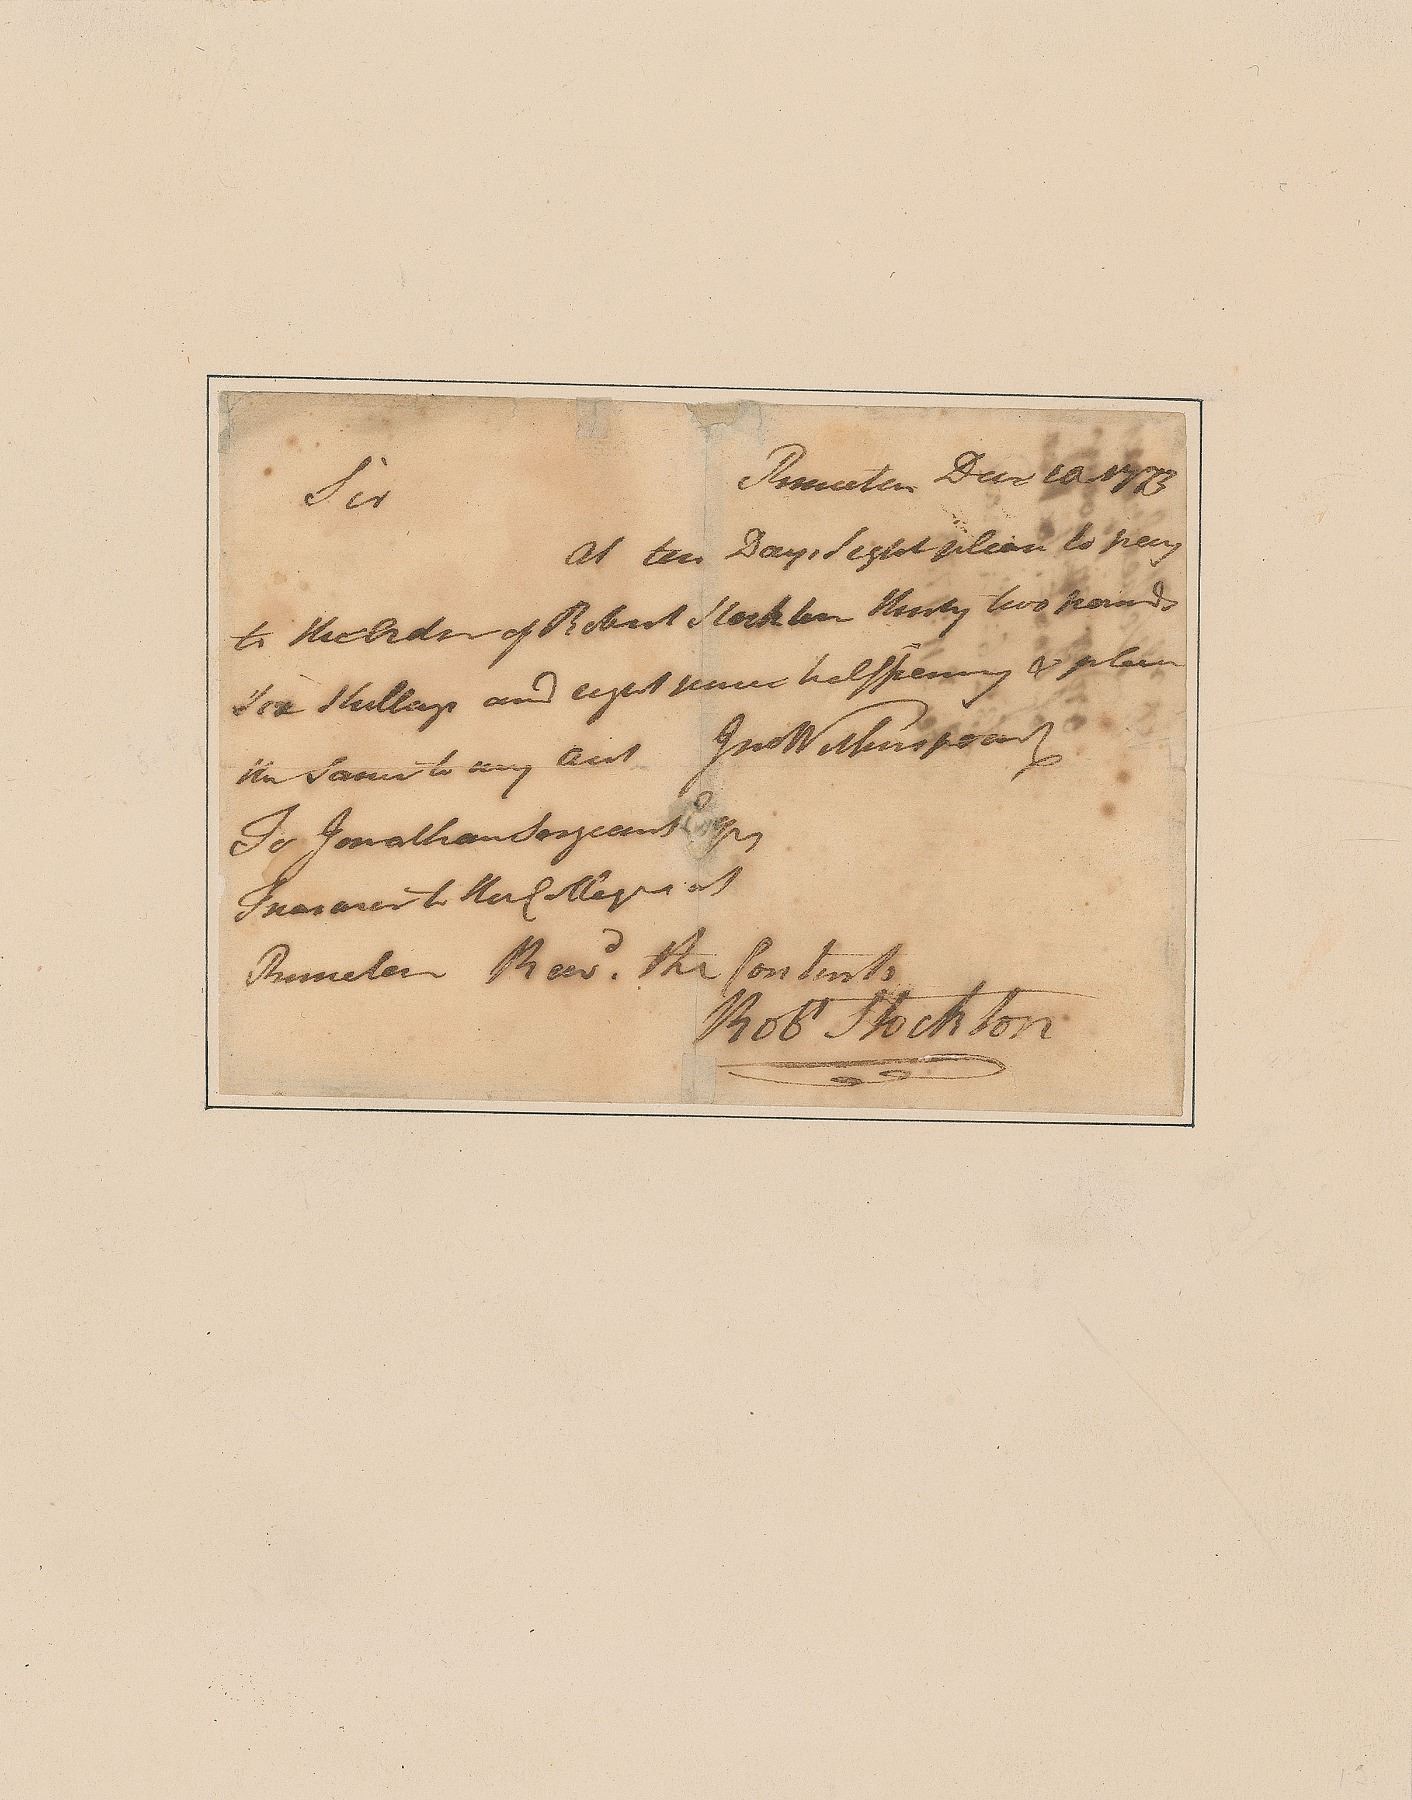 Princeton Decr 10 1773
Sir
At ten Days Sight please to pay
to the Order of Robert Stockton thirty two pounds
six shillings and eight pence halfpenny & place
the same to my Acct Jno Witherspoon
To Jonathan Sergeant Esqr
Treasurer to the College at
Princeton Recvd. the Contents
Robt Stockton